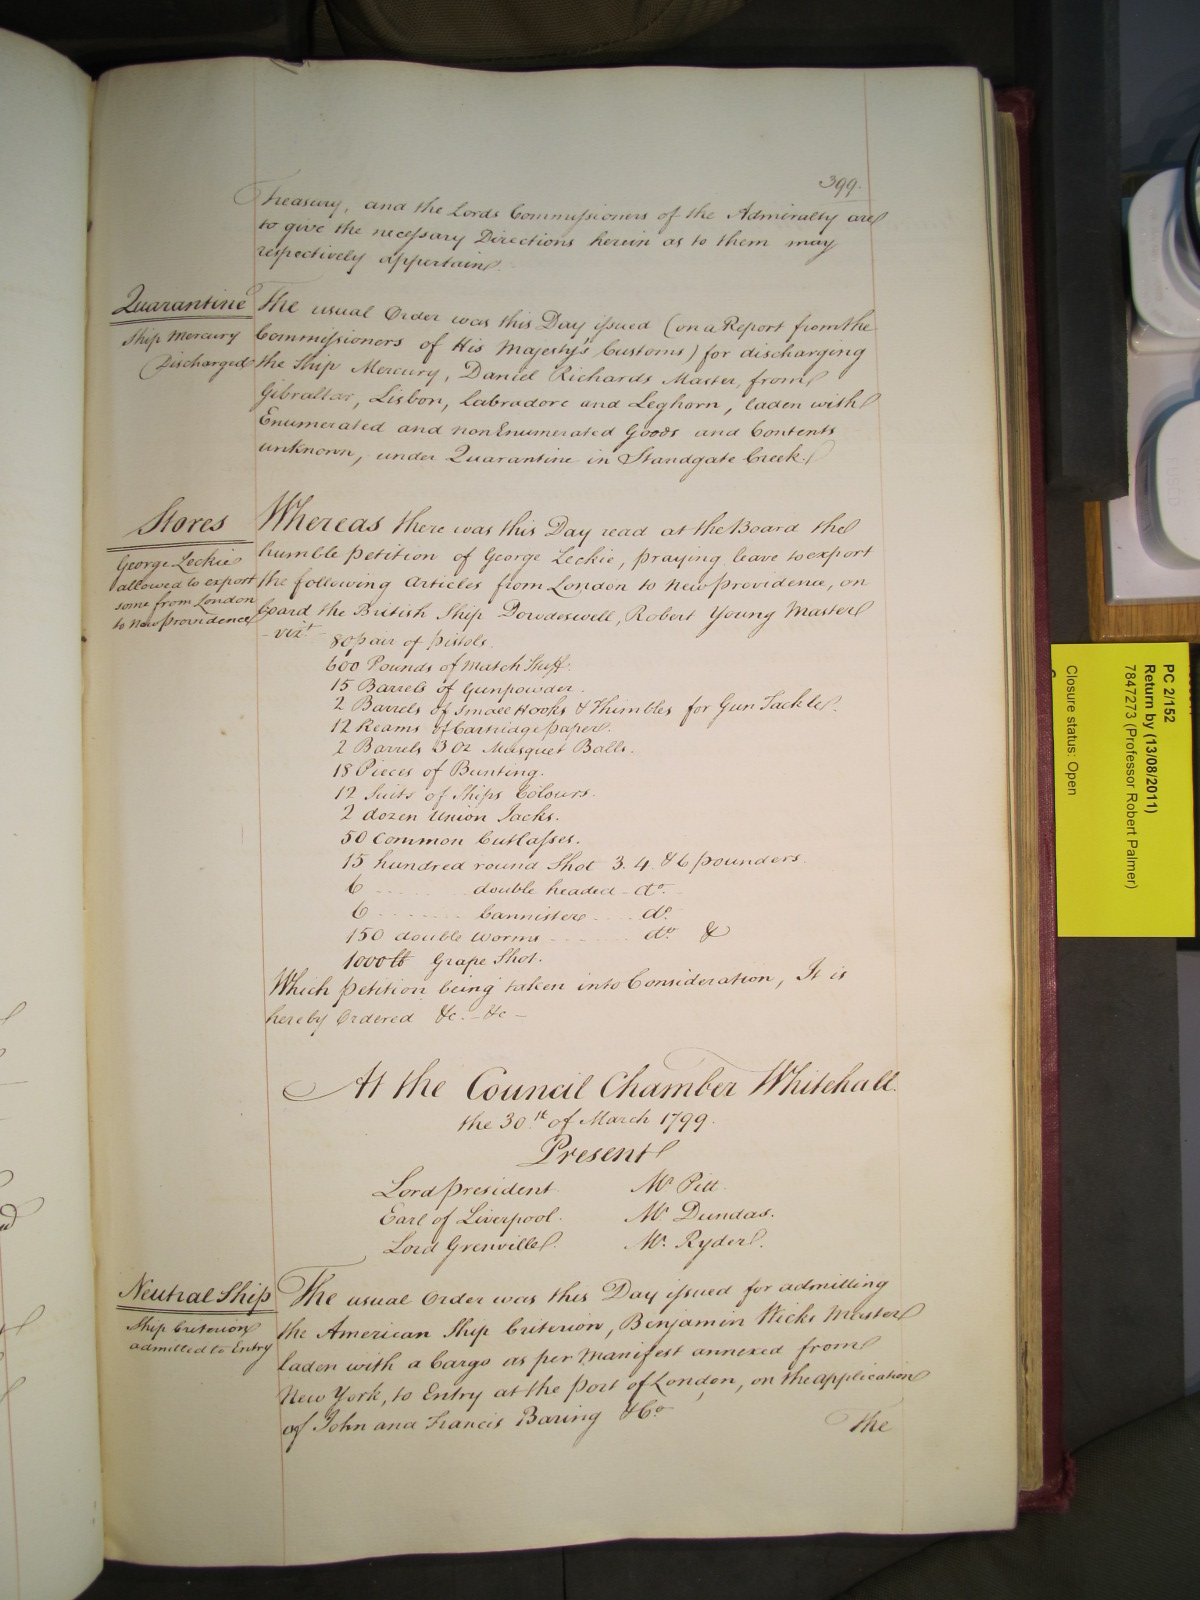 399.
Treasury, and the Lords Commissioners of the Admiralty are
to give the necessary Directions herein as to them may
respectively appertain.
Quarantine
Ship Mercury
Discharged
The usual Order was this Day issued (on a Report from the
Commissioners of His Majesty's Customs) for discharging
the Ship Mercury, Daniel Richards Master, from
Gibraltar, Lisbon, Labradore and Leghorn, laden with
Enumerated and non Enumerated Goods and Contents
unknown, under Quarantine in Standgate Creek.
Stores
George Leckie
allowed to export
some from London
to New Providence
Whereas there was this Day read at the Board the
humble Petition of George Leckie, praying leave to export
the following Articles from London to New Providence, on
board the British Ship Dowdeswell, Robert Young Master
- vizt.
80 pair of Pistols.
600 Pounds of Match Stuff.
15 Barrels of Gunpowder.
2 Barrels of Small Hooks & Thimbles for Gun Tackle.
12 Reams of Cartridge paper.
2 Barrels 3 oz Musquet Balls.
18 Pieces of Bunting.
12 Suits of Ships Colours.
2 dozen Union Jacks.
50 Common Cutlasses.
15 hundred round Shot 3. 4. & 6 pounders.
6 ....... double headed - do.
6 ....... Cannistere .... do.
150 double Worms ....... do. &
1000 lb Grape Shot.
Which Petition being taken into Consideration, It is
hereby Ordered &c. - &c -
At the Council Chamber Whitehall.
the 30th of March 1799.
Present
Lord President Mr Pitt.
Earl of Liverpool. Mr Dundas.
Lord Grenville. Mr. Ryder.
Neutral Ship
Ship Criterion
admitted to Entry
The usual Order was this Day issued for admitting
the American Ship Criterion, Benjamin Wicks Master
laden with a Cargo as per Manifest annexed from
New York, to Entry at the Port of London, on the application
of John and Francis Baring & Co.
The
PC 2/152
Return by (13/08/2011)
7847273 (Professor Robert Palmer)
Closure status: Open